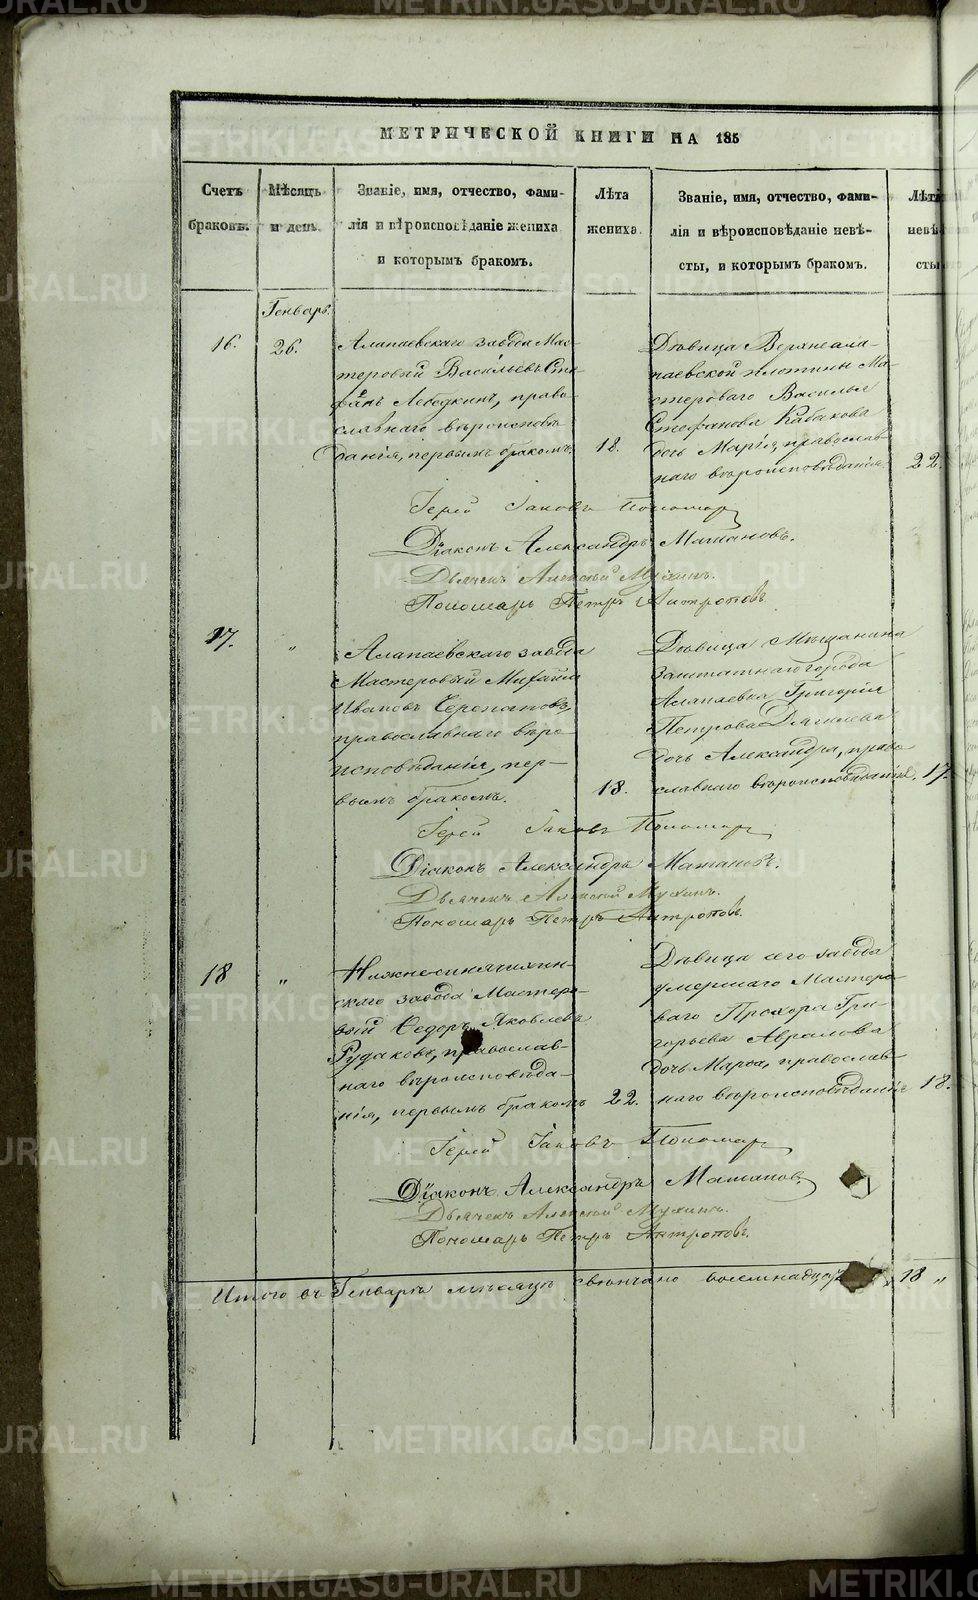 МЕТРИЧЕСКОЙ КНИГИ НА 185
Счетъ браковъ.
Мѣсяцъ и день.
Званіе, имя, отчество, фами-
лія и вѣроисповѣданіе жениха
и которымъ бракомъ.
Лѣта
жениха.
Званіе, имя, отчество, фами-
лія и вѣроисповѣданіе невѣ-
сты, и которымъ бракомъ.
Лѣта
невѣ-
сты
Генварь.
16.
26.
Алапаевскаго завода Мас-
теровый Васильевъ Сте-
фанъ Лебедкинъ, право-
славнаго вѣроисповѣ-
данія, первымъ бракомъ.
18.
Дѣвица Верхнеала-
паевской плотины Ма-
стероваго Василья
Стефанова Кабакова
дочь Марія, православ-
наго вѣроисповѣданія.
22.
Іерей Іаковъ Пономар
Діаконъ Александръ Матановъ.
Дьячекъ Алексѣй Мухинъ.
Пономарь Петръ Антроповъ.
17.
"
Алапаевскаго завода
Мастеровый Михаилъ
Ивановъ Черепановъ,
православнаго вѣро-
исповѣданія, пер-
вымъ бракомъ.
18.
Дѣвица Мѣщанина
Заштатнаго города
Алапаевка Григорія
Петрова Дягилева
дочь Александра, право-
славнаго вѣроисповѣданія.
17.
Іерей Іаковъ Пономар
Діаконъ Александръ Матановъ.
Дьячекъ Алексѣй Мухинъ.
Пономарь Петръ Антроповъ.
18
"
Нижнесинячихин-
скаго завода Мастеро-
вый Ѳедоръ Яковлевъ
Рудаковъ, православ-
наго вѣроисповѣда-
нія, первымъ бракомъ
22.
Дѣвица сего завода
умершаго Мастеро-
ваго Прохора Гри-
горьева Авралова
дочь Марѳа, православ-
наго вѣроисповѣданія
18.
Іерей Іаковъ Пономар
Діаконъ Александръ Матановъ.
Дьячекъ Алексѣй Мухинъ.
Пономарь Петръ Антроповъ.
Итого въ Генварѣ мѣсяцѣ свѣнчано восемнадца " 18 "
METRIKI.GASO-URAL.RU